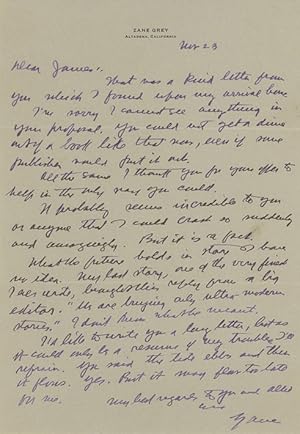 ZANE GREY
ALTADENA, CALIFORNIA
Nov 23
Dear James:
That was a kind letter from
you which I found upon my arrival home
I'm sorry I cannot see anything in
your proposal. You could not get a dime
out of a book like that now, even if some
publisher would put it out.
All the same I thank you for your offer to
help in the only way you could.
It probably seems incredible to you
or anyone that I could crash so suddenly
and amazingly. But it is a fact.
What the future holds in store I have
no idea. My last story, one of the very finest
I ever wrote, brought this reply from a big
editor: "We are buying only ultra modern
stories." I don't know what he meant.
I'd like to write you a long letter, but as
it could only be a resume of my troubles I'll
refrain. You said the tide ebbs and then
it flows. Yes. But it may flow too late
for me.
My best regards to you and
Zane